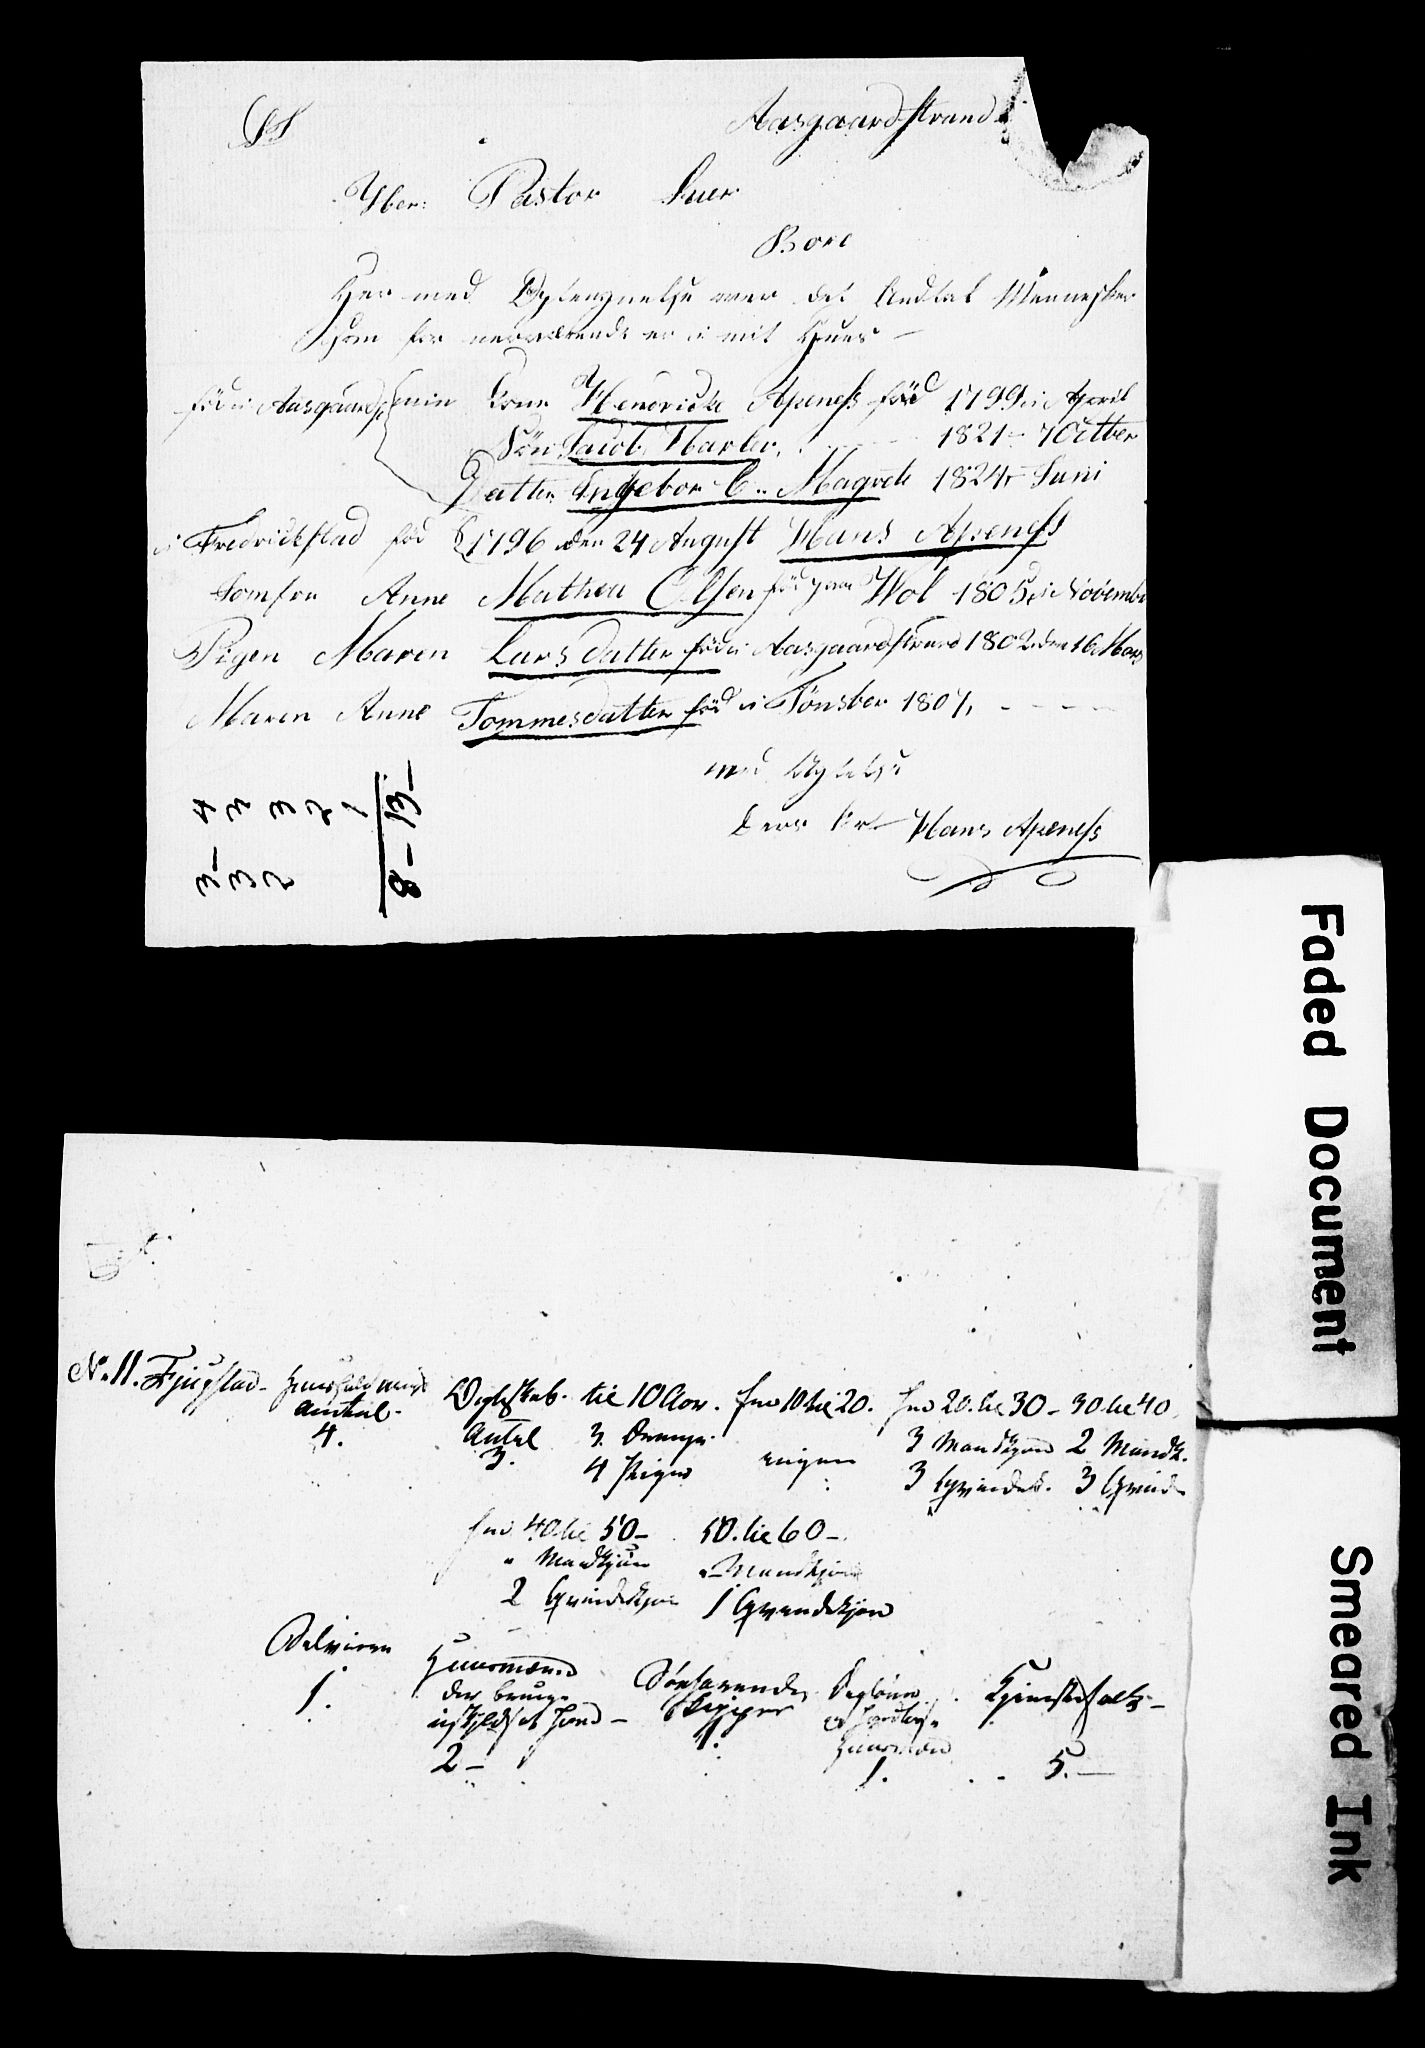 Aasgaardstrand
Pastor
Bore
Her med over det Andtal Mennesker
Som for nerværende er i mit Huus –
föd i Aasgaards min Kone Hendricke Apeness föd 1799 i April
Sön Jacob Marler 1821 – 7 Octber
Datter Ingebor C. Magrete 1824 – Juni
i Fredrickstad föd 1796 den 24 August Hans Apeness
Jomfru Anne Mathea Olsen föd paa Wol 1805 i Novembe
Pigen Maren Larsdatter föd i Aasgaardstrand 1802 den 16 Mars
Maren Anne Tommesdatter föd i Tönsber 1807
med Agtelse
Deres Hans Apeness
4 3 3 2 1 13 –
3 – 3 2 8 –
No. 11. Fjugstad –
Antal.
4.
Antal
3.
til 10 Aar.
3. Drenge
4 Piger
fra 10 til 20.
ingen
fra 20 til 30 –
3 Mandkjøn
3 Qvindek.
30 til 40
2 Mandk.
3 Qvind
fra 40 til 50 –
" Mandkjøn
2 Qvindekjøn
50 til 60 –
" – Mandkjøn
1 Qvindekjøn
Selveiere
1.
Huusmænd
der bruge
Jord –
2 –
Söefarende
Skipper
1.
Dagleiere
og
Huusmænd
1.
Tjenestefolk –
5. –
Faded Document
Smeared Ink